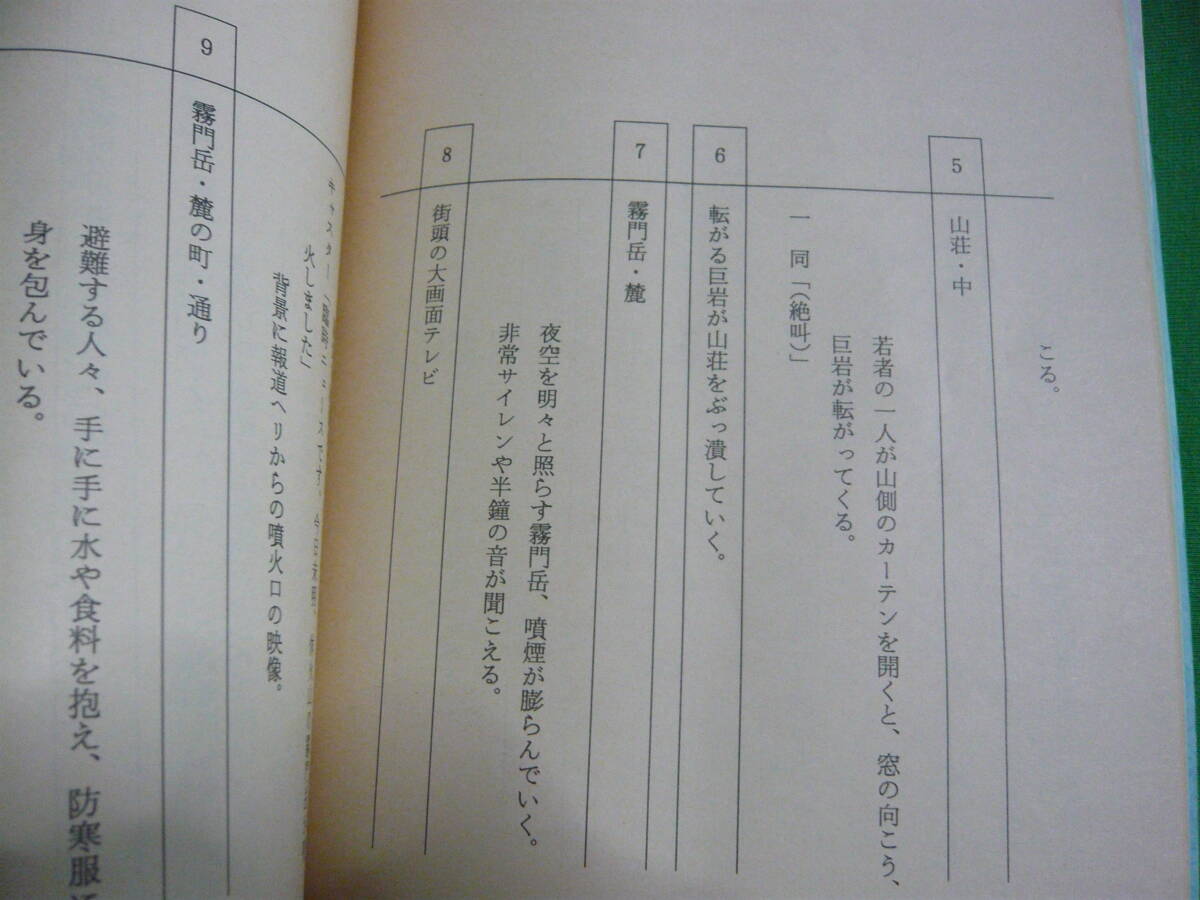 こる。
5
山荘・中
若者の一人が山側のカーテンを開くと、窓の向こう、
巨岩が転がってくる。
一 同「(絶叫)」
6
転がる巨岩が山荘をぶっ潰していく。
7
霧門岳・麓
夜空を明々と照らす霧門岳、噴煙が膨らんでいく。
非常サイレンや半鐘の音が聞こえる。
8
街頭の大画面テレビ
キャスター「臨時ニュースです。今日未明、
火しました」
背景に報道ヘリからの噴火口の映像。
9
霧門岳・麓の町・通り
避難する人々、手に手に水や食料を抱え、防寒服
身を包んでいる。